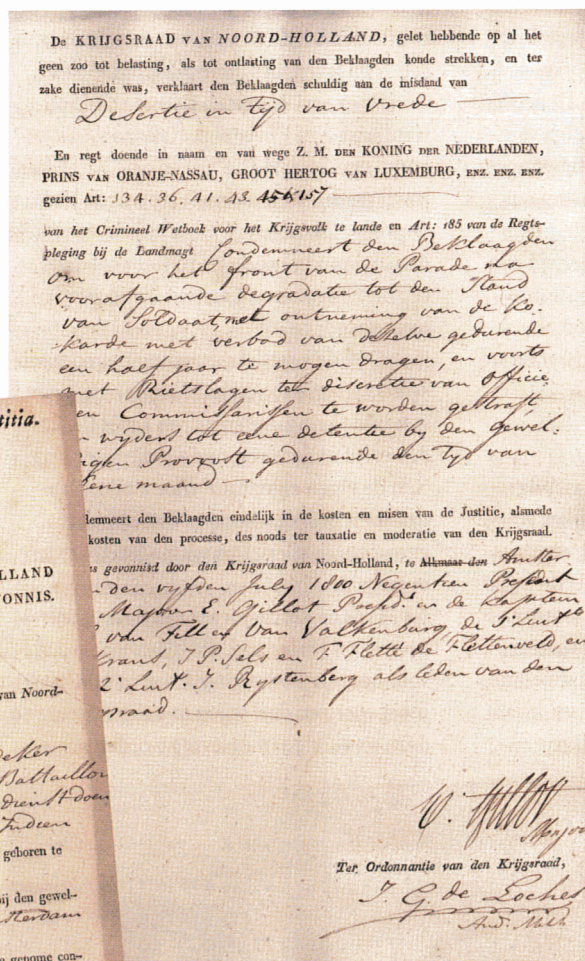 De KRIJGSRAAD VAN NOORD-HOLLAND, gelet hebbende op al het
geen zoo tot belasting, als tot ontlasting van den Beklaagden konde strekken, en ter
zake dienende was, verklaart den Beklaagden schuldig aan de misdaad van
Desertie in tijd van vrede
En regt doende in naam en van wege Z. M. DEN KONING DER NEDERLANDEN,
PRINS VAN ORANJE-NASSAU, GROOT HERTOG VAN LUXEMBURG, ENZ. ENZ. ENZ.
gezien Art: 134. 36. 41. 43. 45 & 157
van het Crimineel Wetboek voor het Krijgsvolk te lande en Art: 185 van de Regts-
pleging bij de Landmagt Condemneert den Beklaagden
om voor het front van de Parade na
voorafgaande degradatie tot den Stand
van Soldaat, met ontneming van de Ko-
karde met verbod van dezelve gedurende
een half jaar te mogen dragen, en voorts
met Rietslagen ter discretie van Officie
en Commissarissen te worden gestraft,
wijders tot eene detentie by den gewel:
digen Provoost gedurende den tyd van
Eene maand
demneert den Beklaagden eindelijk in de kosten en misen van de Justitie, alsmede
kosten van den processe, des noods ter tauxatie en moderatie van den Krijgsraad.
s gevonnisd door den Krijgsraad van Noord-Holland, te Alkmaar den Amster
den vyfden July 1800 Negentien Presidt
Majoor E. Gillot Presidt en de Kapteins
van Fill en Van Valkenburg de 1e Luits
Krans, J P. Sels en F. Flette de Flettenveld, en
2e Luit. J. Rystenberg als leden van den
sraad.
Gillot
Major
Ter Ordonnantie van den Krijgsraad,
J. G. de Loches
Aud. Milt
titia.
LLAND
ONNIS.
van Noord-
deker
Battaillon
dienst doen
Indien
geboren te
ij den gewel-
sterdam
n genome con-